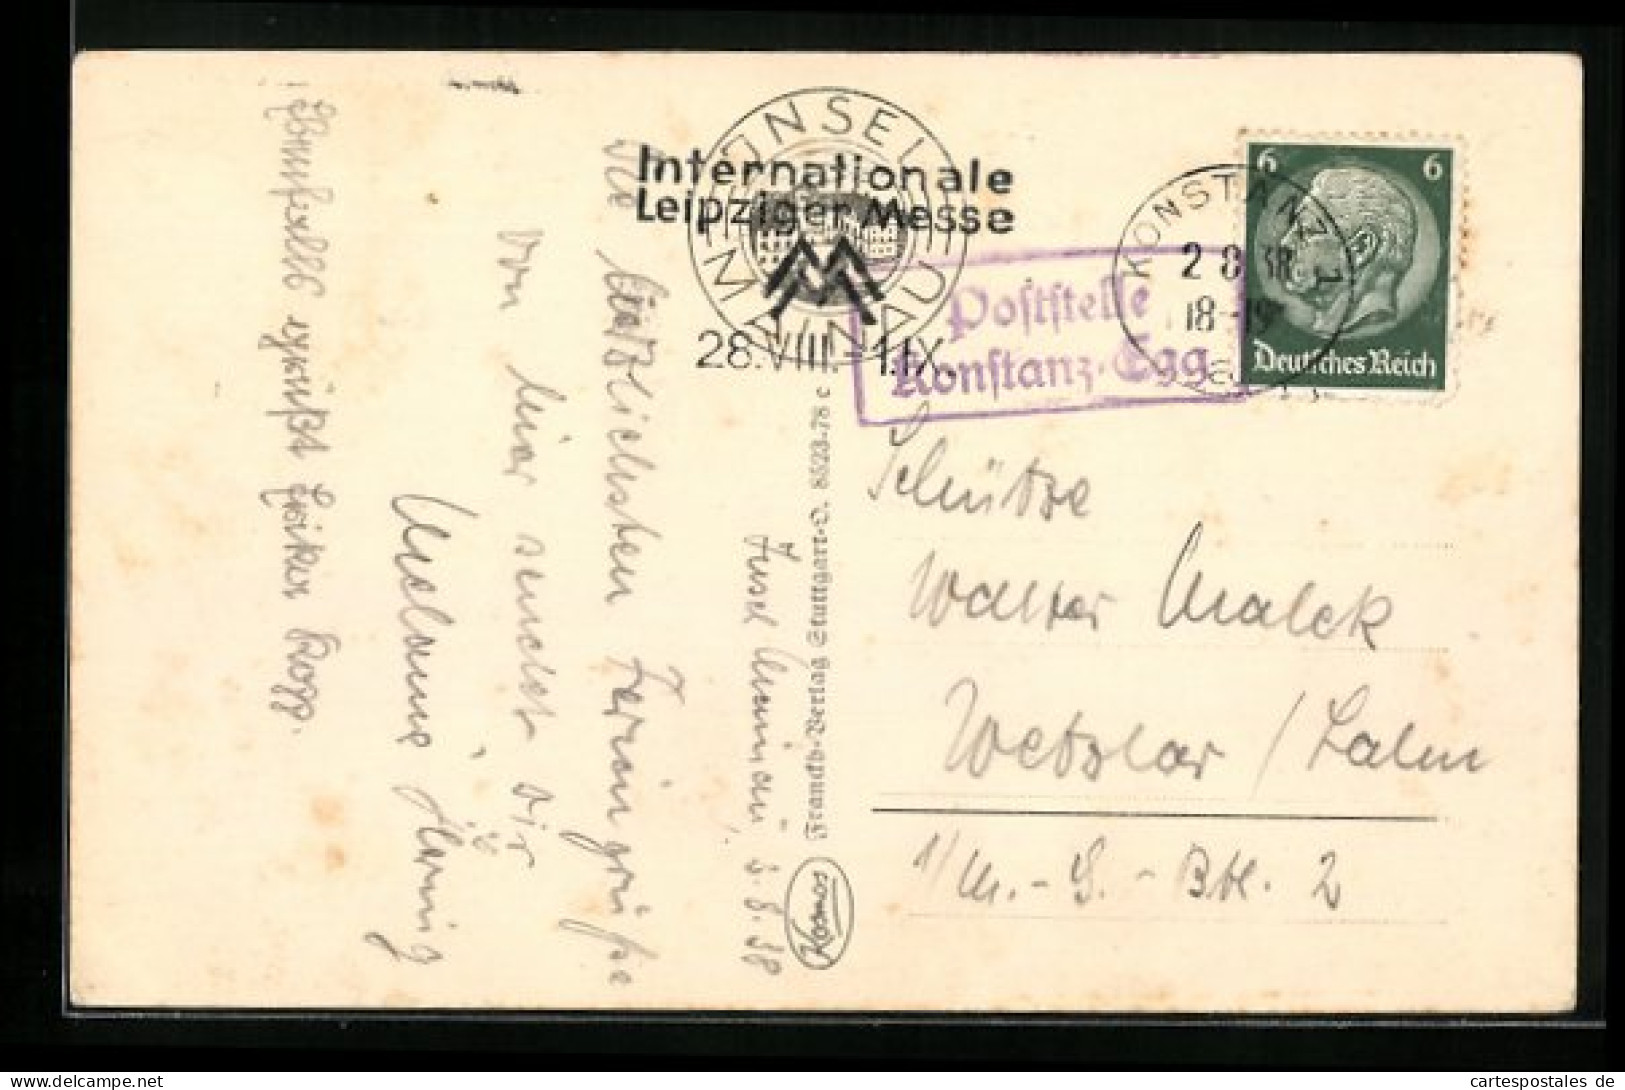 INSEL
MAINAU
Internationale
Leipziger Messe
28.VIII.-1.IX.
Poststelle
Konstanz-Egg
KONSTANZ 1
2 8 38
18-19
6 6
Deutsches Reich
Schütze
Walter Malek
Wetzlar / Lahn
1/M.-G.-Btl. 2
Franckh-Verlag Stuttgart-O. 8523-78 c
Kosmos
Insel Mainau, 2.8.38
Die herzlichsten Feriengrüße
von hier sendet dir
Melanie
Ebenfalls grüßt
cartespostales de